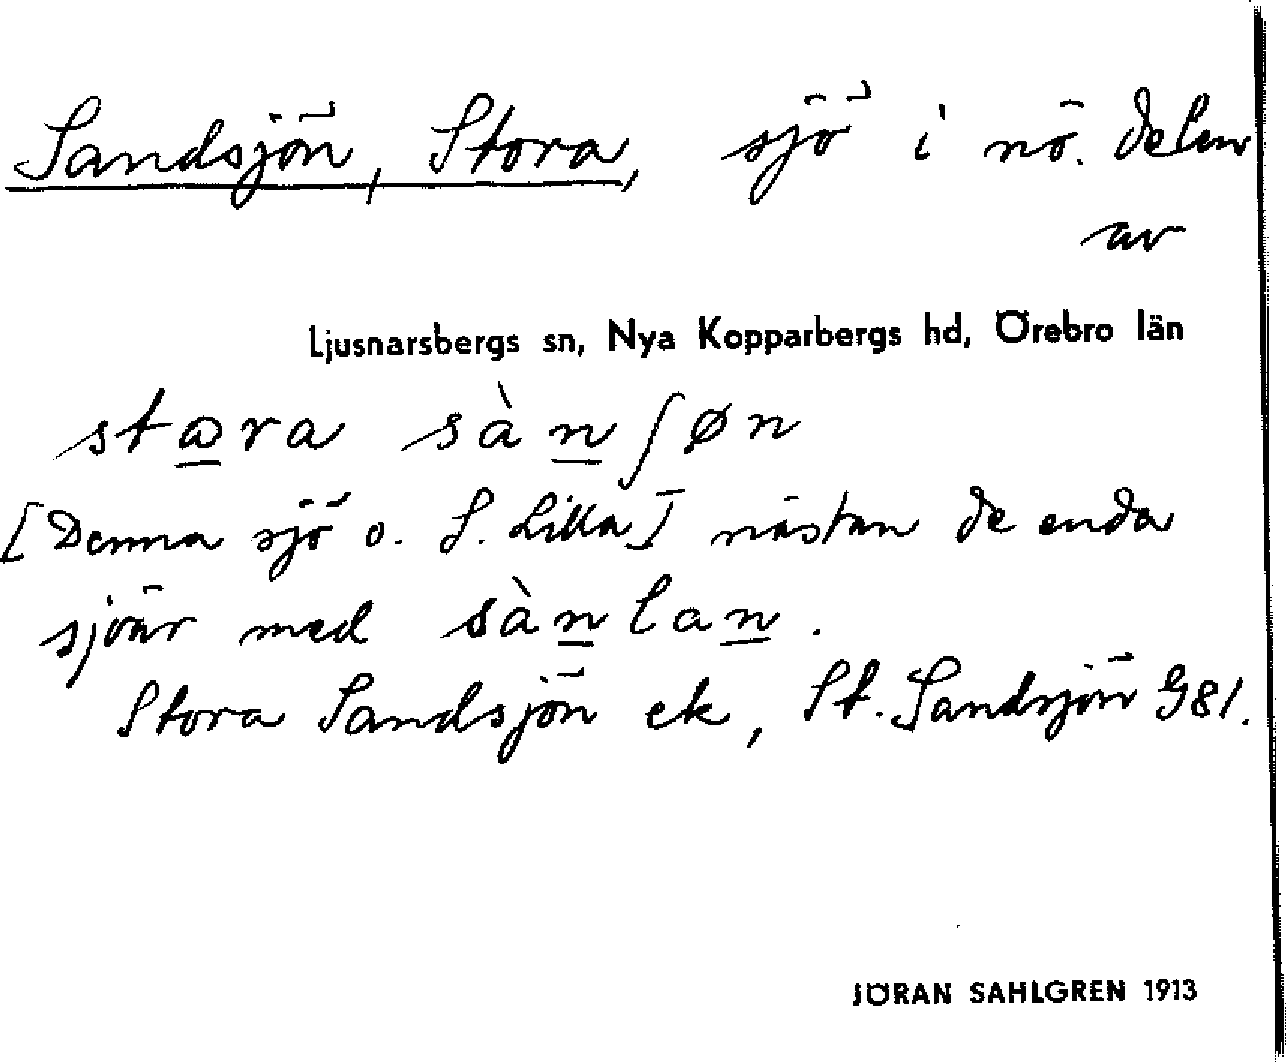 Sandsjön, Stora, sjö i nö. delen
av
Ljusnarsbergs sn, Nya Kopparbergs hd, Örebro län
stωra sànʃøn
[Denna sjö o. S. Lilla] nästan de enda
sjöar med sànlan.
Stora Sandsjön ek, St. Sandsjön G81.
JÖRAN SAHLGREN 1913